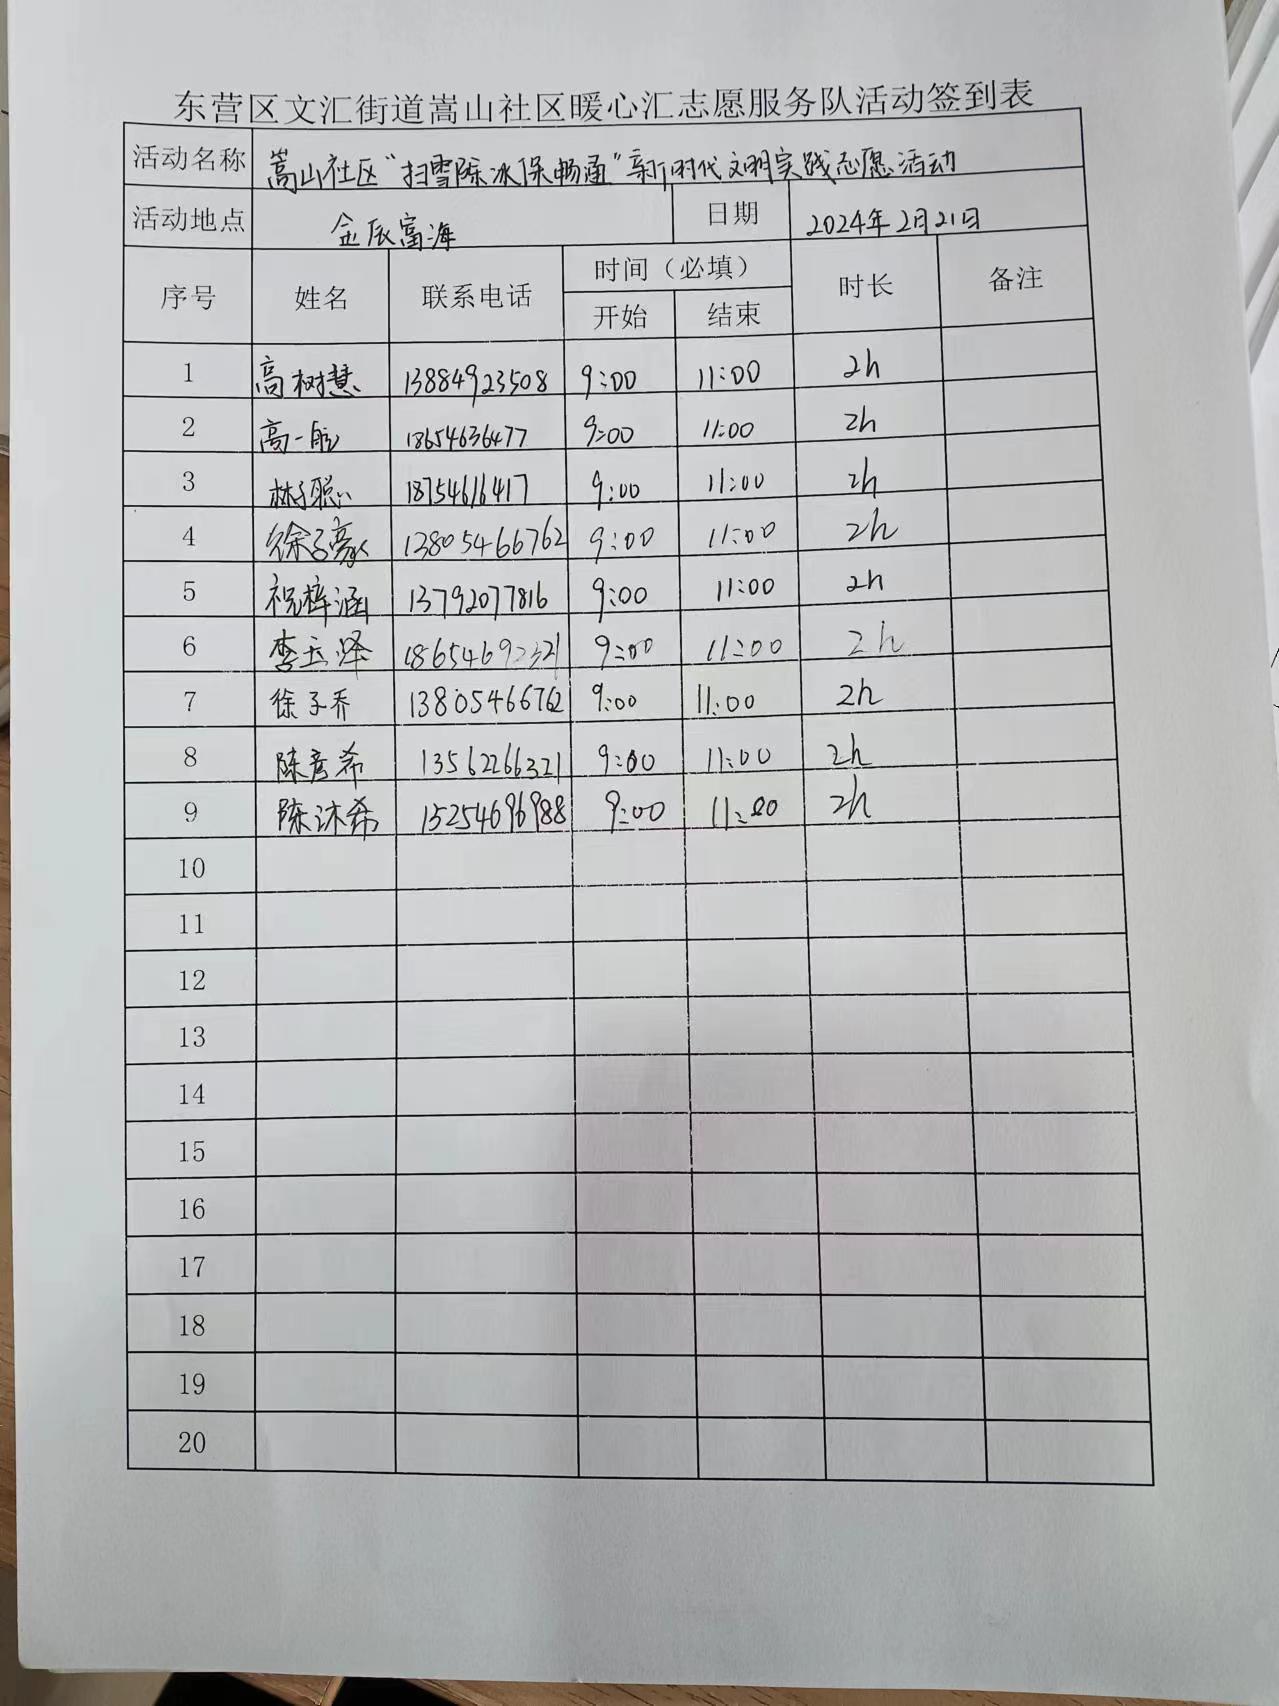 东营区文汇街道嵩山社区暖心汇志愿服务队活动签到表
活动名称 嵩山社区“扫雪除冰保畅通”新时代文明实践志愿活动
活动地点 金辰富海 日期 2024年2月21日
序号 姓名 联系电话 时间（必填） 时长 备注
开始 结束
1 高树慧 13884923508 9:00 11:00 2h
2 高一航 18654636477 9:00 11:00 2h
3 林子聪 18754616417 9:00 11:00 2h
4 徐子豪 13805466762 9:00 11:00 2h
5 祝梓涵 13792077816 9:00 11:00 2h
6 李玉泽 18654692321 9:00 11:00 2h
7 徐子乔 13805466762 9:00 11:00 2h
8 陈彦希 13562266321 9:00 11:00 2h
9 陈沐希 15254696988 9:00 11:00 2h
10
11
12
13
14
15
16
17
18
19
20